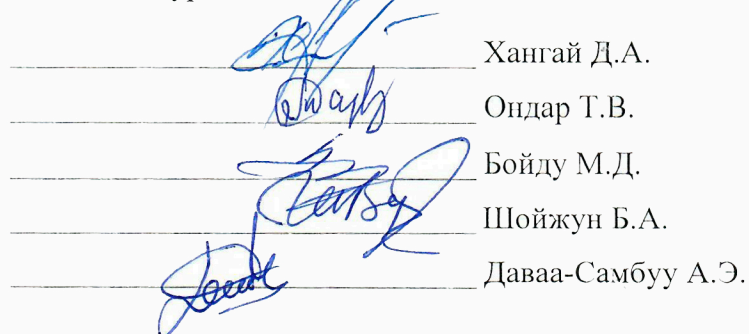 Хангай Д.А.
Ондар Т.В.
Бойду М.Д.
Шойжун Б.А.
Даваа-Самбуу А.Э.